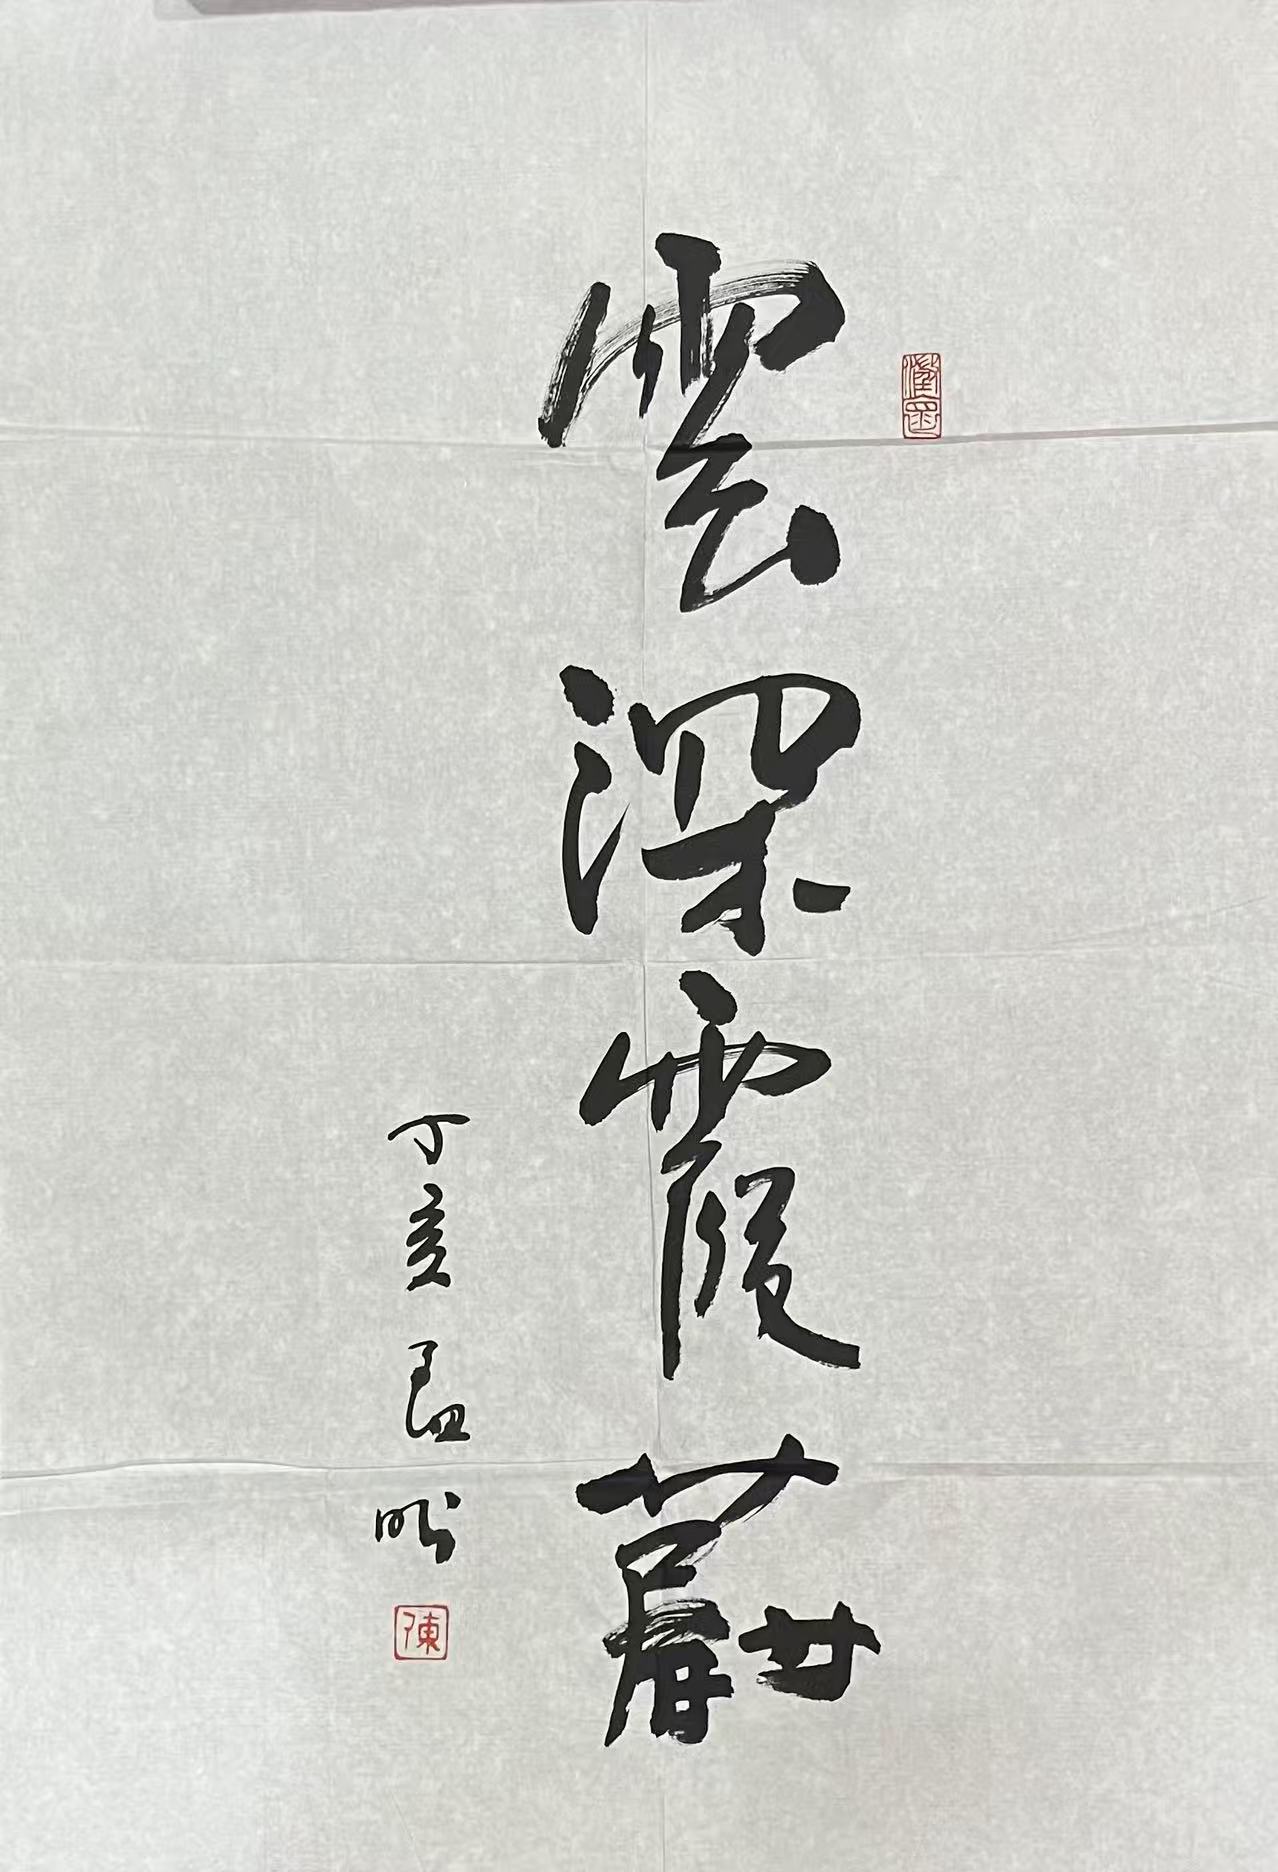 雲深霞蔚
丁亥孟
陳